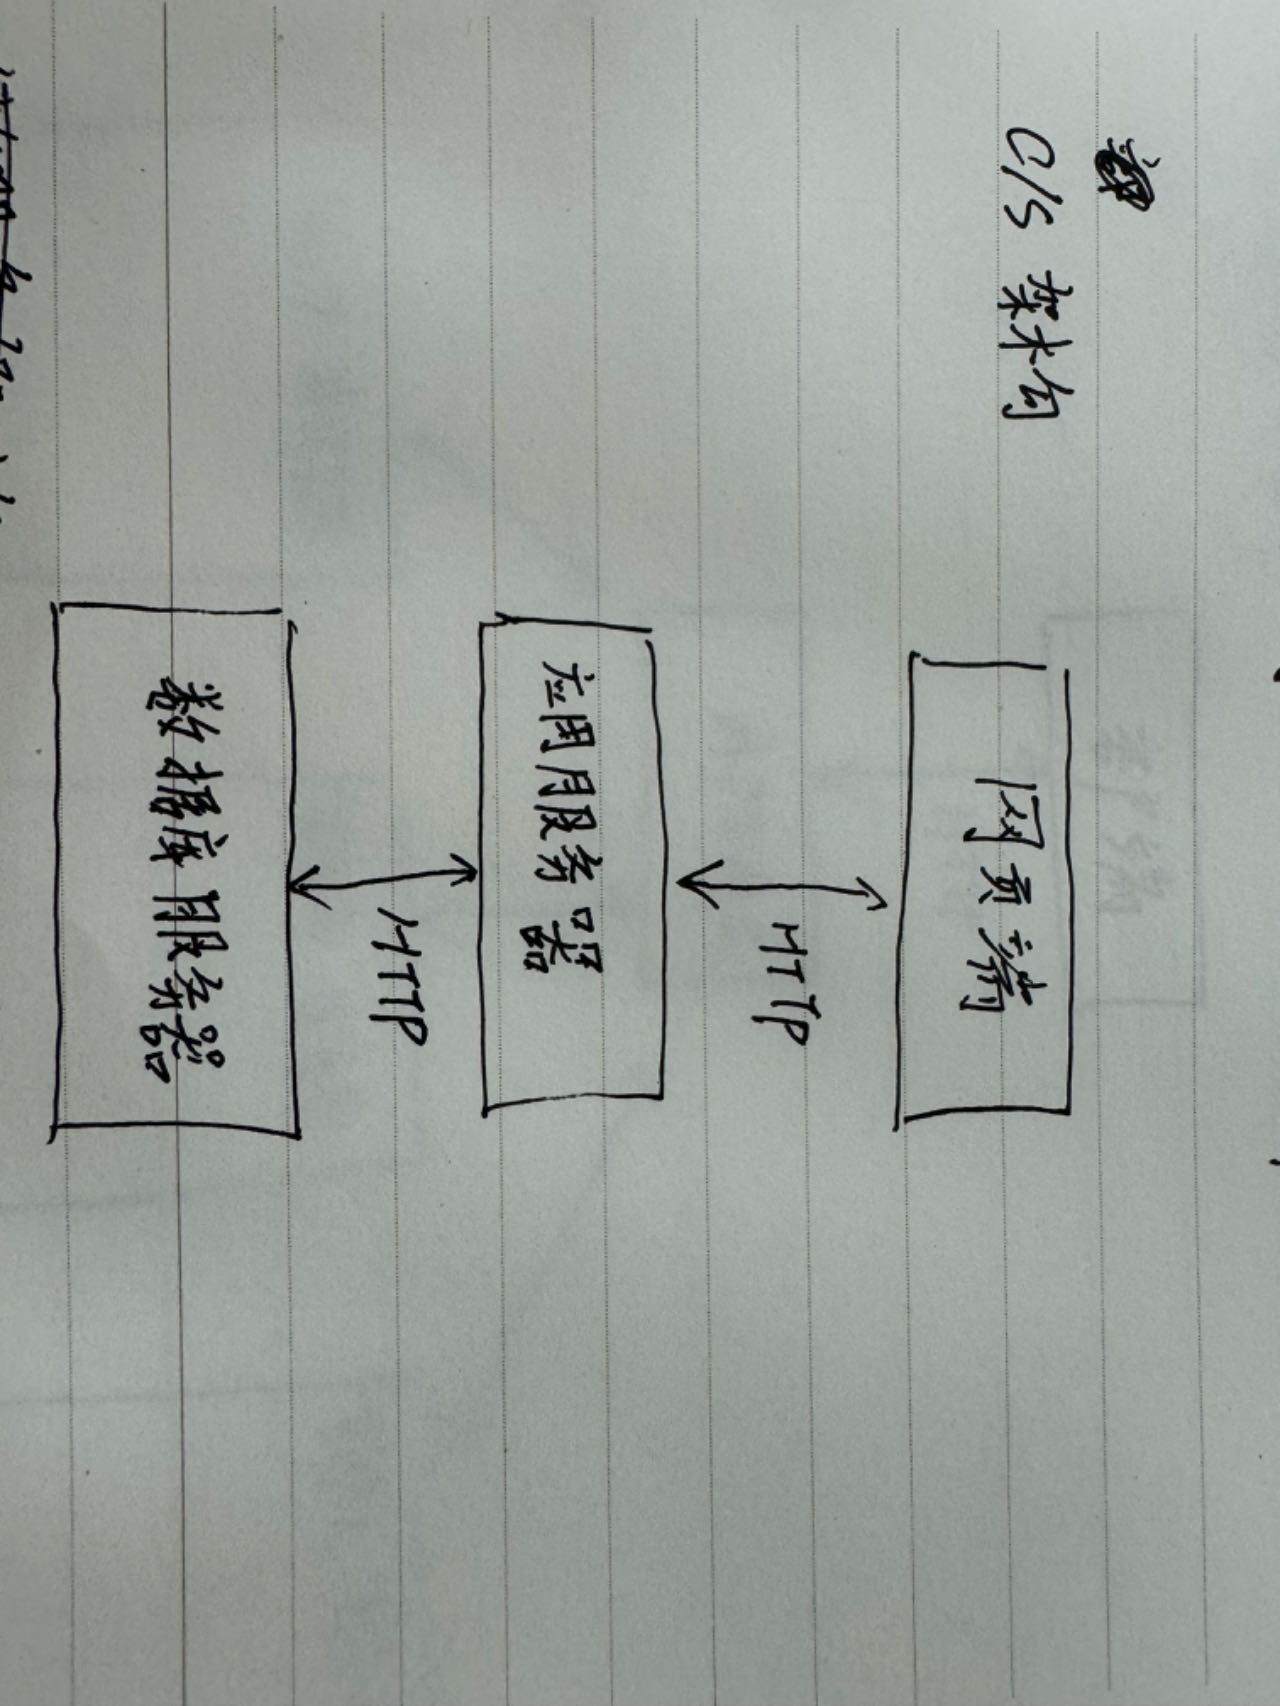 C/S 架构
网页端
HTTP
应用服务器
HTTP
数据库服务器